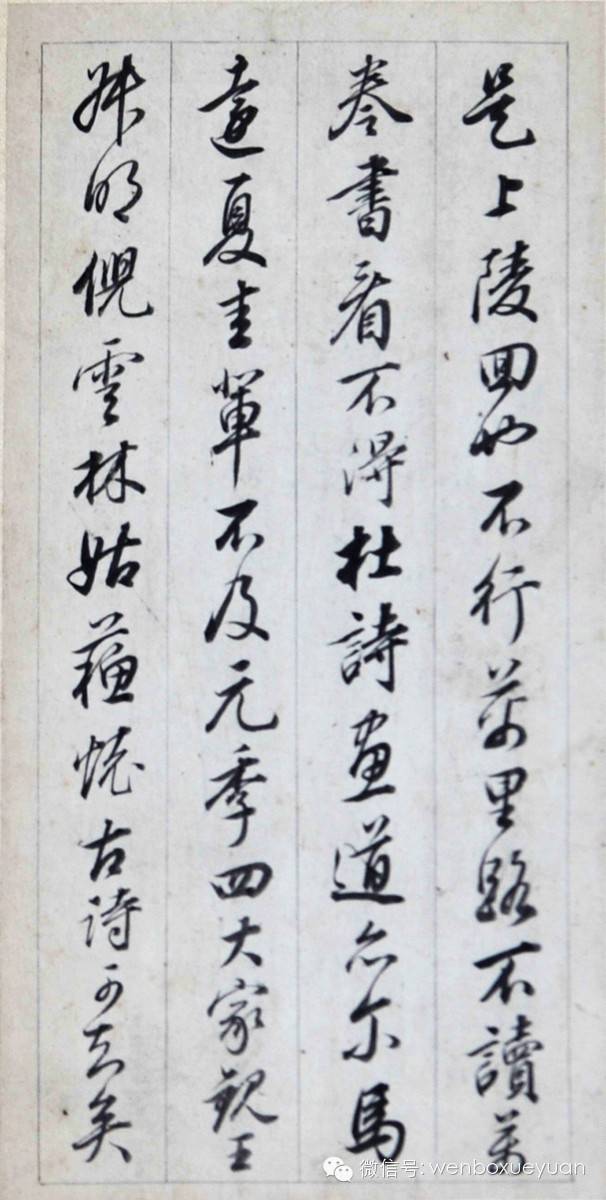 是上陵回也不行萬里路不讀萬
卷書看不得杜詩畫道亦尔馬
遠夏圭輩不及元季四大家觀王
叔明倪雲林姑蘇懷古詩可知矣
微信号: wenboxueyuan